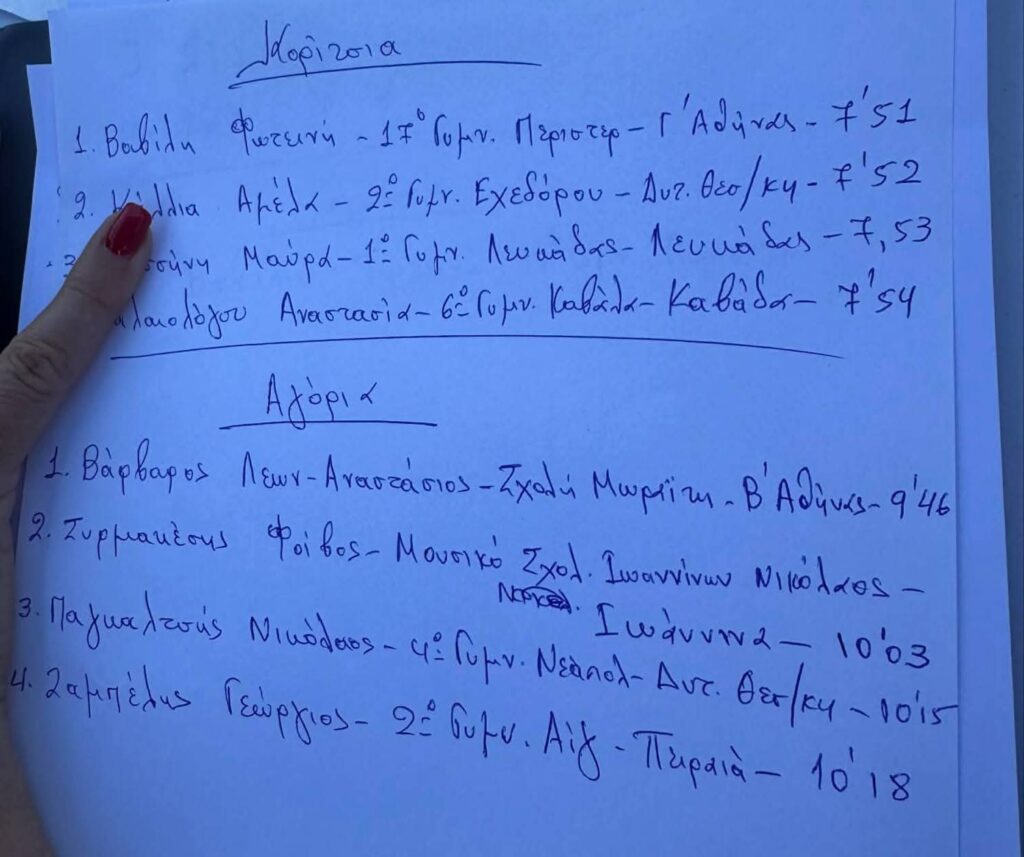 Κορίτσια
1. Βαβίλη Φωτεινή - 17° Γυμν. Περιστερ - Γ' Αθήνας - 7'51
2. Αμέλα - 2° Γυμν. Εχεδόρου - Δυτ. Θεσ/κη - 7'52
Μαύρα - 1° Γυμν. Λευκάδας - Λευκάδας - 7,53
Αναστασία - 6° Γυμν. Καβάλα - Καβάλα - 7'54
Αγόρια
1. Βάρβαρος Λεων-Αναστάσιος - Σχολή Μωραΐτη - Β' Αθήνας - 9'46
2. Συρμακέσης Φοίβος - Μουσικό Σχολ. Ιωαννίνων Νικόλαος -
Ιωάννινα - 10'03
3. Παγκαλτσής Νικόλαος - 4° Γυμν. Νεάπολ - Δυτ. Θεσ/κη - 10'15
4. Ζαμπέλης Γεώργιος - 2° Γυμν. Αίγ - Πειραιά - 10'18